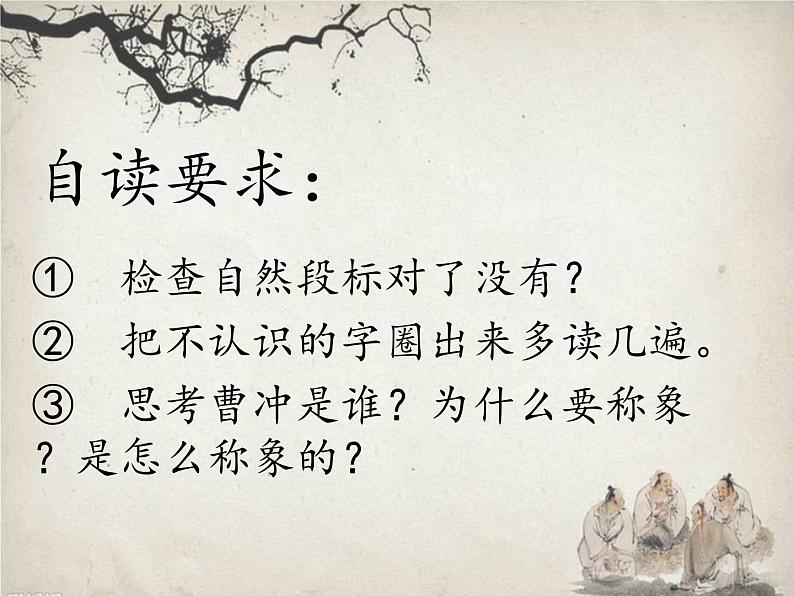 自读要求：
① 检查自然段标对了没有？
② 把不认识的字圈出来多读几遍。
③ 思考曹冲是谁？为什么要称象
？是怎么称象的？